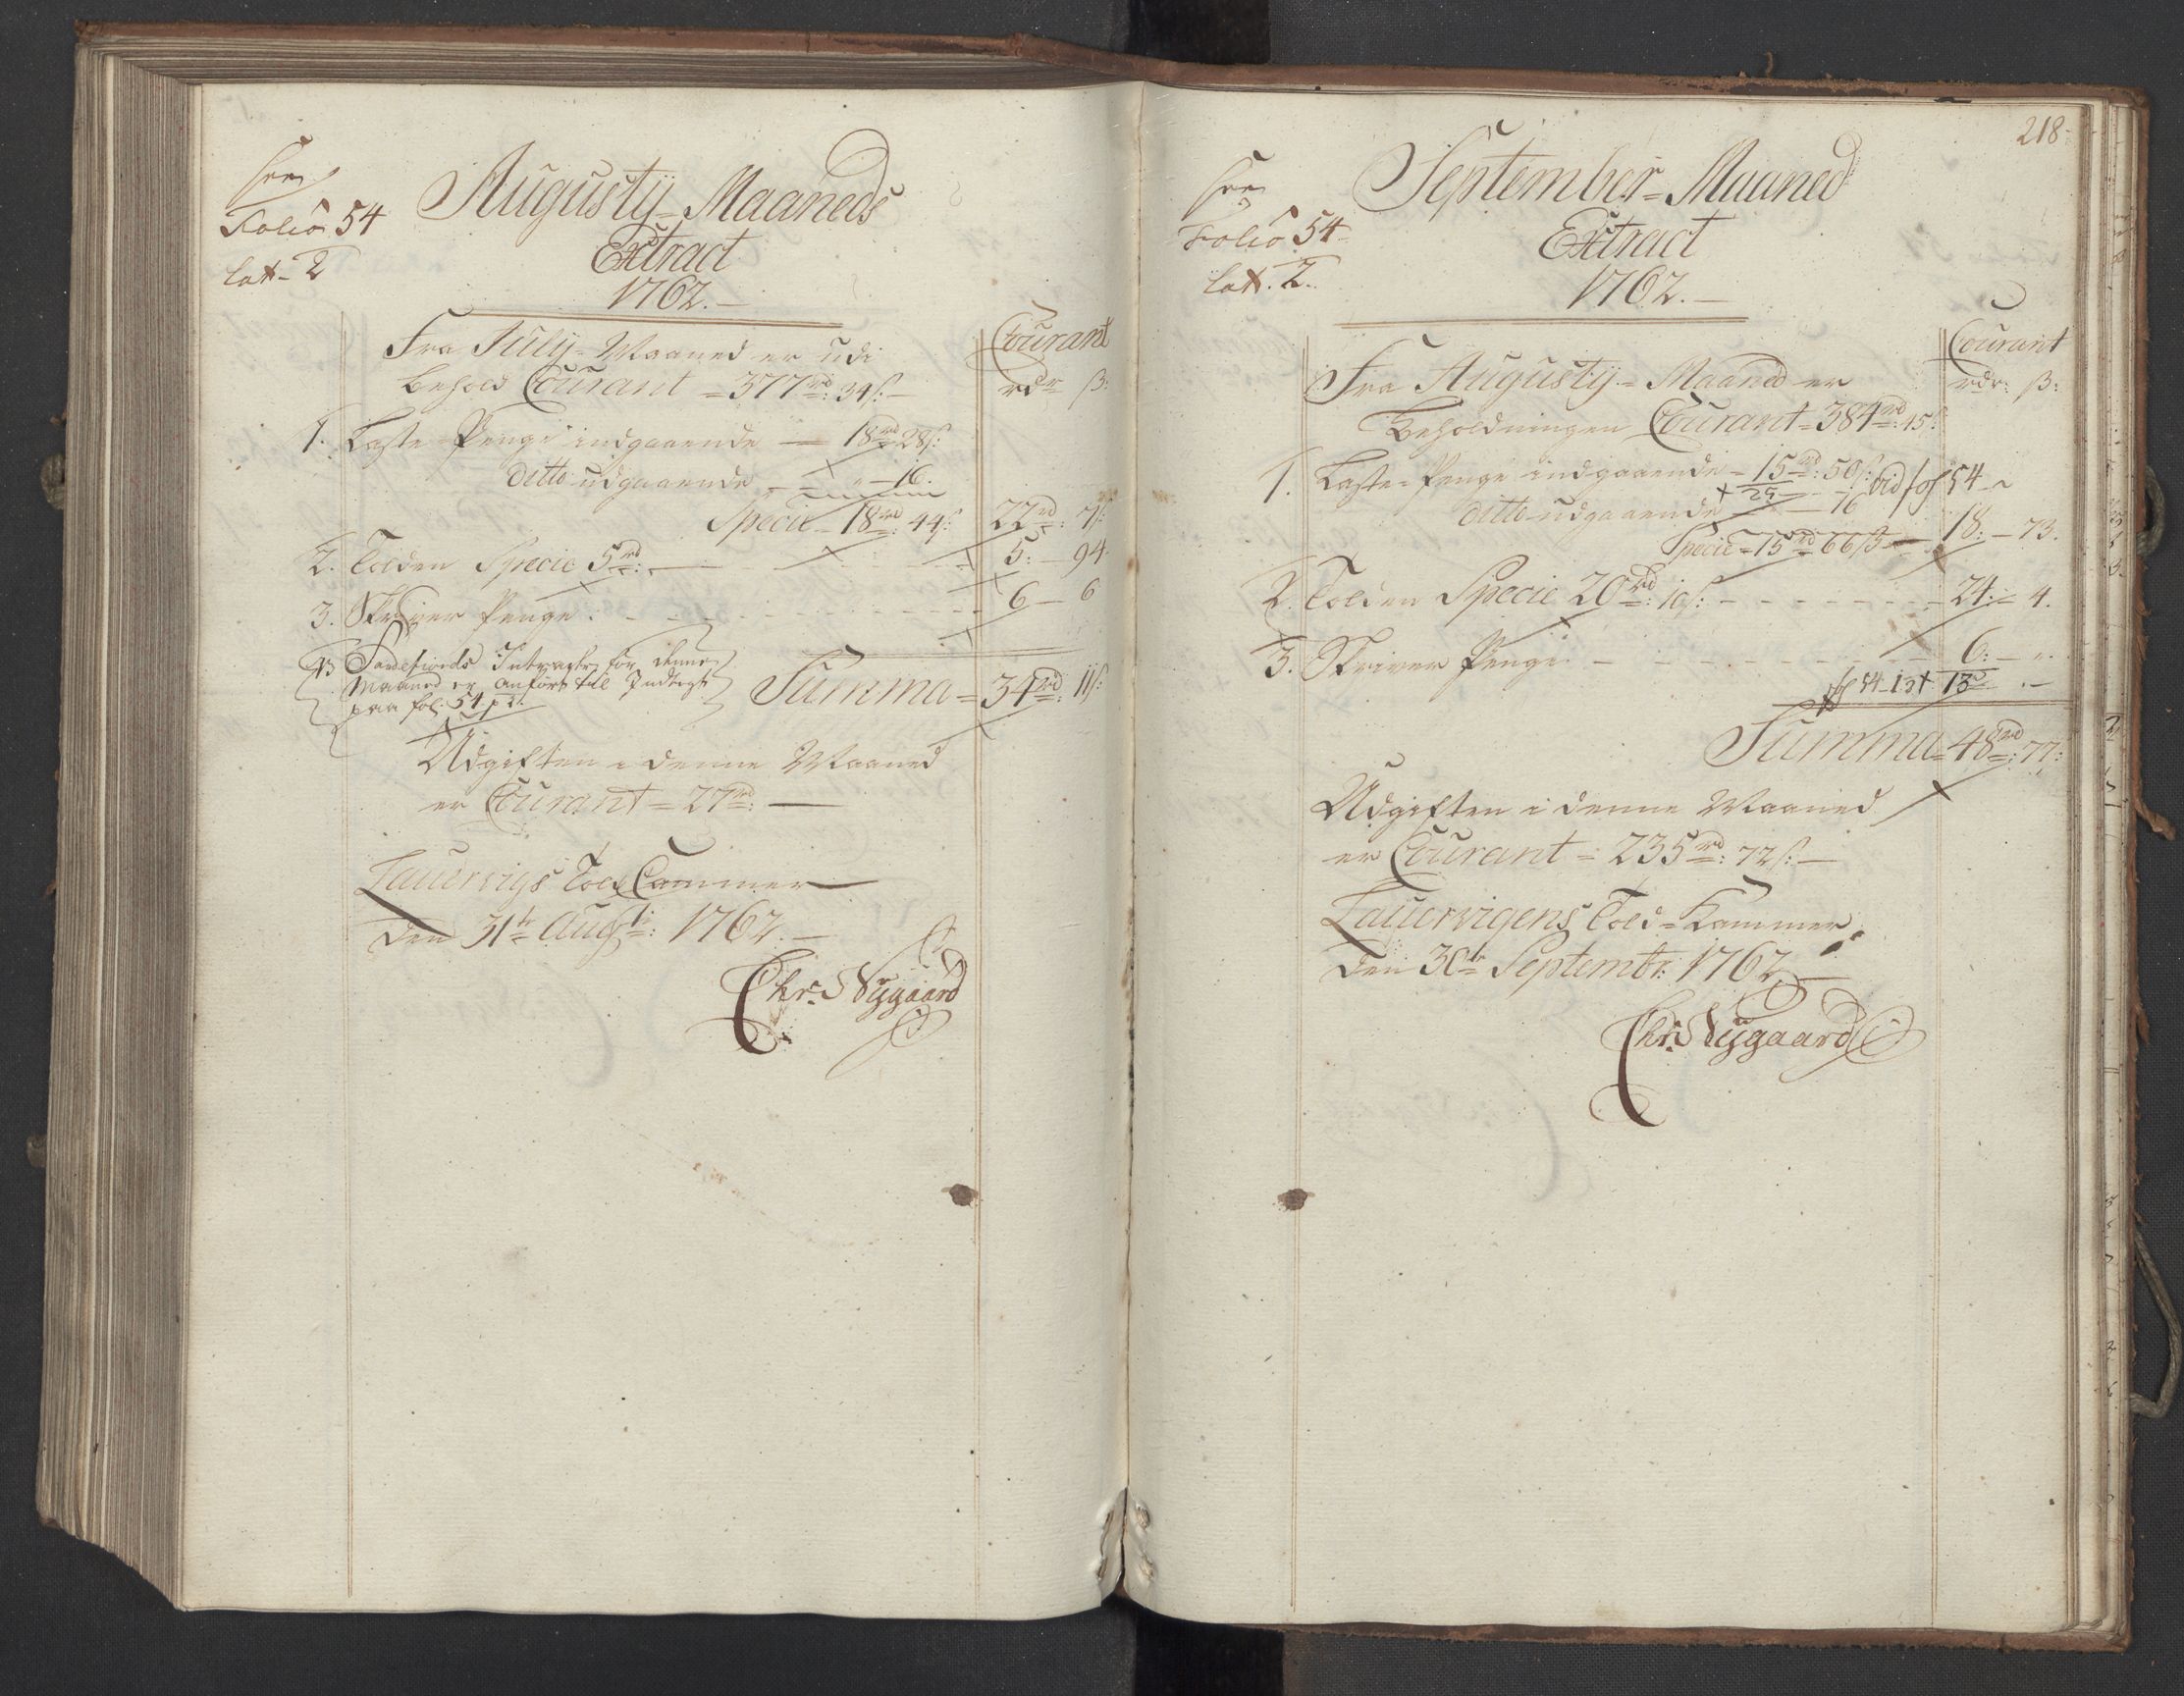 see
Folio 54
lat. 2
Augustÿ-Maaneds
Extract
1762.
Courant
rdr ß:
Fra Julÿ-Maaned er udi
Behold Courant = 377rd: 34ß.
1. Laste Penge indgaaende — 18rd 28ß:
ditto udgaaende — " - 16.
Specie - 18rd: 44ß: 22rd: 7ß:
2. Tolden Specie 5rd: — 5: - 94
3. Skriver Penge: 6 - 6
NB Sandefiords Intrader for denne
Maaned er anført til Indtegt
paa fol: 54 p 2.
Summa = 34rd: 11ß:
Udgiften i denne Maaned
er Courant = 27rd: —
Lauervigs Told Cammer
den 31te Augsti: 1762.
Chr. Nÿgaard
218
see
Folio 54
lat. 2.
September-Maaned
Extract
1762.
Courant
rdr: ß:
Fra Augustÿ-Maaned er
Beholdningen Courant = 384rd: 45ß:
1. Laste-Penge indgaaende - 15rd: 50ß: vid fol 54
ditto udgaaende 25 - 16
Specie - 15rd 66ß 18: - 73.
2. Tolden Specie 20rd: 10ß: 24: - 4.
3. Skriver Penge 6: - "
fol 54 lat 13 . —
Summa = 48rd: 77:
Udgiften i denne Maaned
er Courant = 235rd: 72ß: —
Lauervigens Told-Kammer
den 30te Septembr: 1762
Chr. Nÿgaard